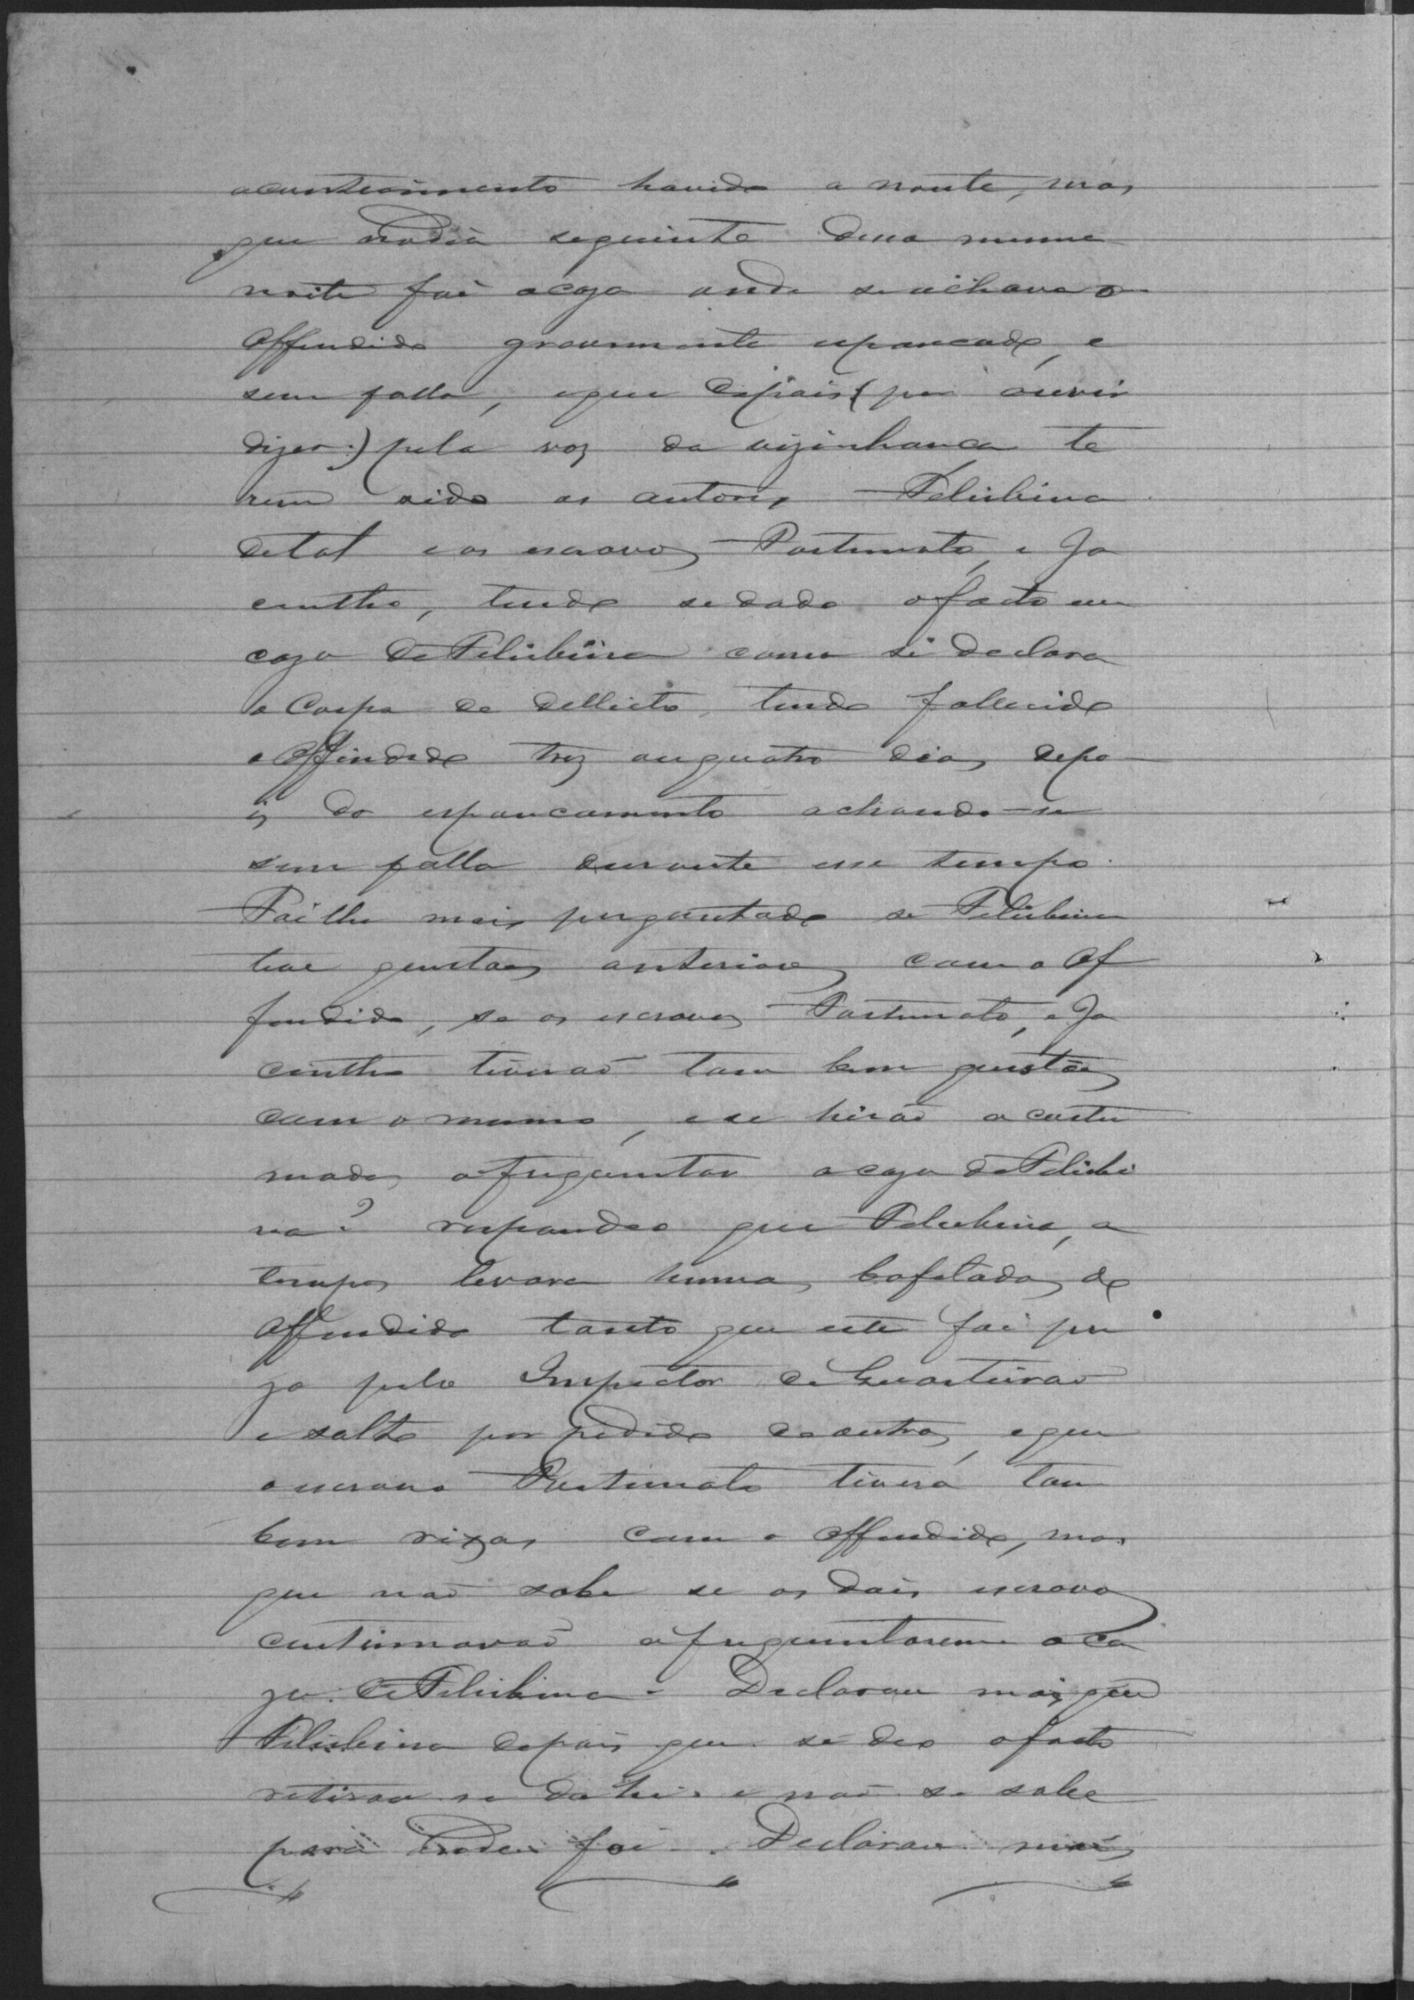 acontecimento havido a noute, mas
que nodia seguinte dessa mesma
noite foi acaza onde se achava o
Offendido gravemente espancado, e
sem falla, eque depois (por ouvir
dizer) pela voz da vizinhança te
rem sido os autores Felisbina
detal e os escravos Fortunato, e Ja
cintho, tendo se dado ofacto em
caza de Felisbina como si declara
o Corpo de dellicto, tendo fallecido
o Offindido trez ouquatro dias depo
is do espancamento achando-se
sem falla durante esse tempo.
Foi lhe mais perguntado se Felisbina
teve questoes anteriores com o Of
fendido, se os escravos Fortunato, e Ja
cintho tiverão tam bem questões
com o mesmo, ese hirão acostu
mados afreguentar acaza de Felisbi
na? respondeo que Felisbina, a
tempos levara humas bofetadas do
Offendido tanto que este foi pre
zo pelo Inspector de Quarteirão
e solto por pedido de outros, eque
oescravo Fortunato tivera tam
bem rixas com o Offendido, mas
que não sabe se os dois escravos
continuavão afreguentarem aca
za de Felisbina. Declarou mais que
Felisbina depois que se deo ofacto
retirou se dahi e não se sabe
para honde foi. Declarou mais